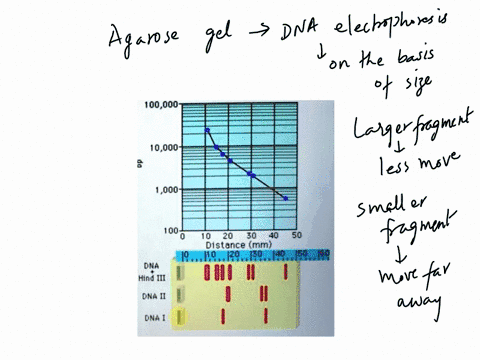 Agarose gel → DNA electrophoresis
↓ on the basis
of size
Larger fragment
↓
less move
smaller
fragment
↓
move far
away
100,000
10,000
1,000
100
bp
0 10 20 30 40 50
Distance (mm)
0 10 20 30 40 50 60
DNA
+
Hind III
DNA II
DNA I